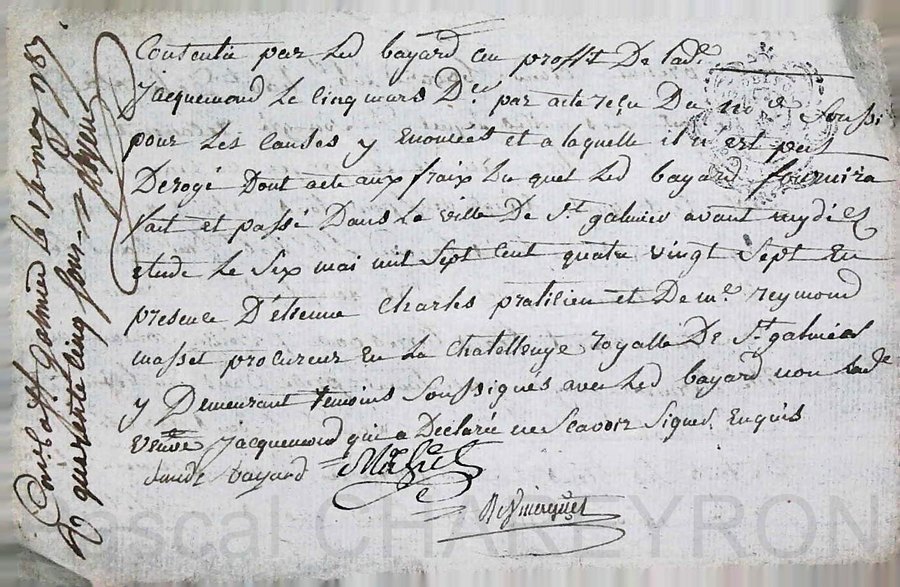 Consentie par led bayard au proffit De lad.
jacquemond le cinq mars D.er par acte reçu Du no.re soussi
pour les causes y enoncées et a laquelle il n'est pas
Derogé Dont acte aux fraix du quel led bayard fournira
fait et passé Dans la ville De St galmier avant mydi
etude le six mai mil sept cent quatre vingt sept en
presence D'etienne Charles praticien et De me. reymond
masset procureur en la Chatellenye royalle De St galmier
y Demeurant temoins soussignés avec led bayard non lade
veuve jacquemond qui a Declaré ne scavoir signer enquis
bayard
Con.lé a St. Galmier le 14 may 1787.
quarante cinq sous
Pascal CHAREYRON